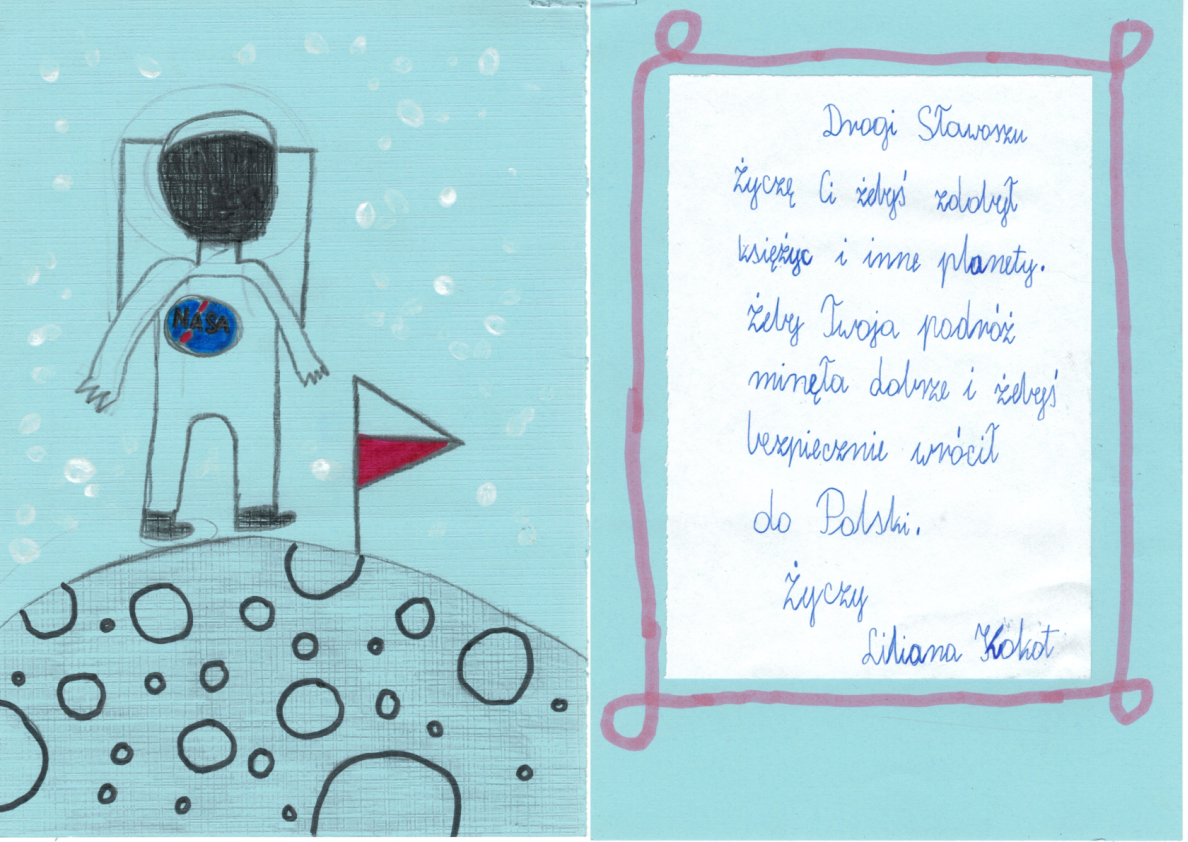 NASA
Drogi Sławoszu
Życzę Ci żebyś zdobył
księżyc i inne planety.
Żeby Twoja podróż
minęła dobrze i żebyś
bezpiecznie wrócił
do Polski.
Życzy
Liliana Kokot